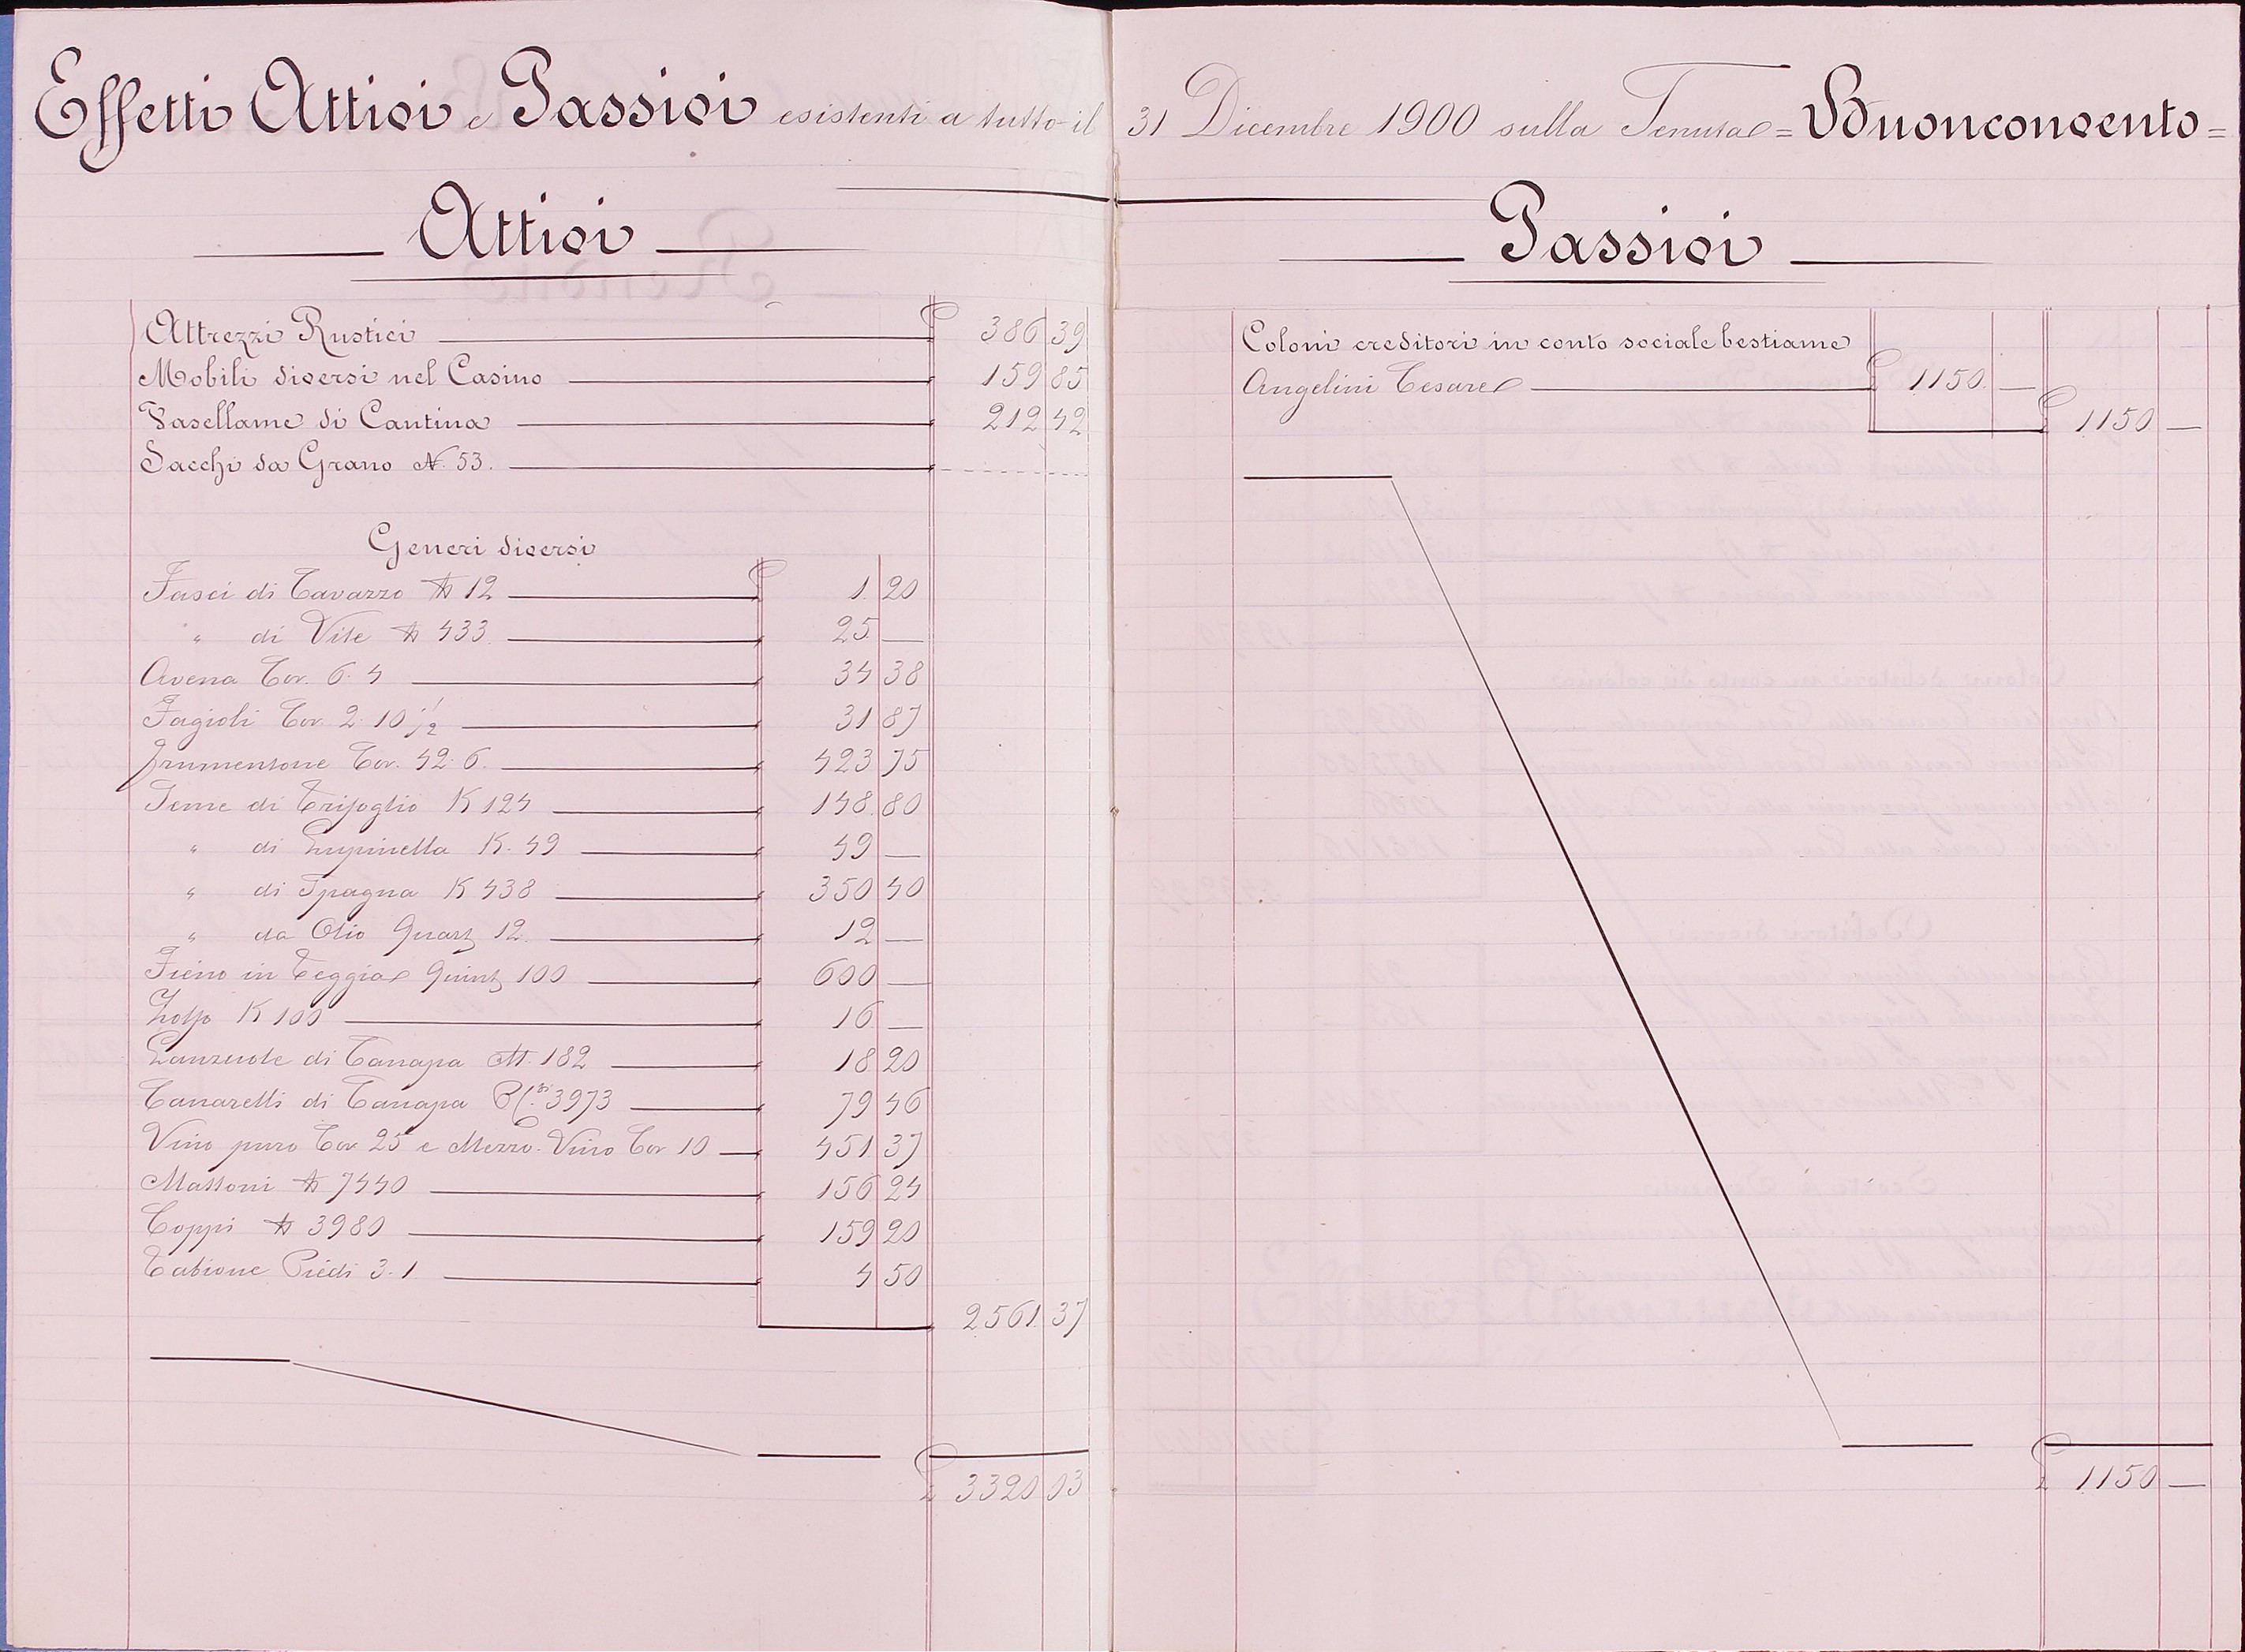 Effetti Attivi e Passivi esistenti a tutto il 31 Dicembre 1900 sulla Tenuta = Buonconvento =
Attivi
Attrezzi Rustici £ 386 39
Mobili diversi nel Casino 159 85
Vasellame di Cantina 212 42
Sacchi da Grano N. 53.
Generi diversi
Fasci di Cavazzo N 12 £ 1. 20
" di Vite N 433 25 —
Avena Cor. 6. 4 34 38
Fagioli Cor. 2. 10 1/2 31 87
Frumentone Cor. 42. 6. 423 75
Seme di Trifoglio K 124 148. 80
" di Lupinella K. 49 49 —
" di Spagna K 438 350 40
" da Olio Quart 12. 12 —
Fieno in Teggia Quint 100 600 —
Zolfo K 100 16 —
Lanzuole di Canapa M. 182 18 20
Canarelli di Canapa 3973 79 46
Vino puro Cor. 25 e Mezzo-Vino Cor 10 451. 37
Mattoni N 7440 156 24
Coppi N 3980 159 20
Cabione Piedi 3. 1 4 50
2561. 37
£ 3320 03
Passivi
Coloni creditori in conto sociale bestiame
Angelini Cesare £ 1150 —
£ 1150 —
£ 1150 —